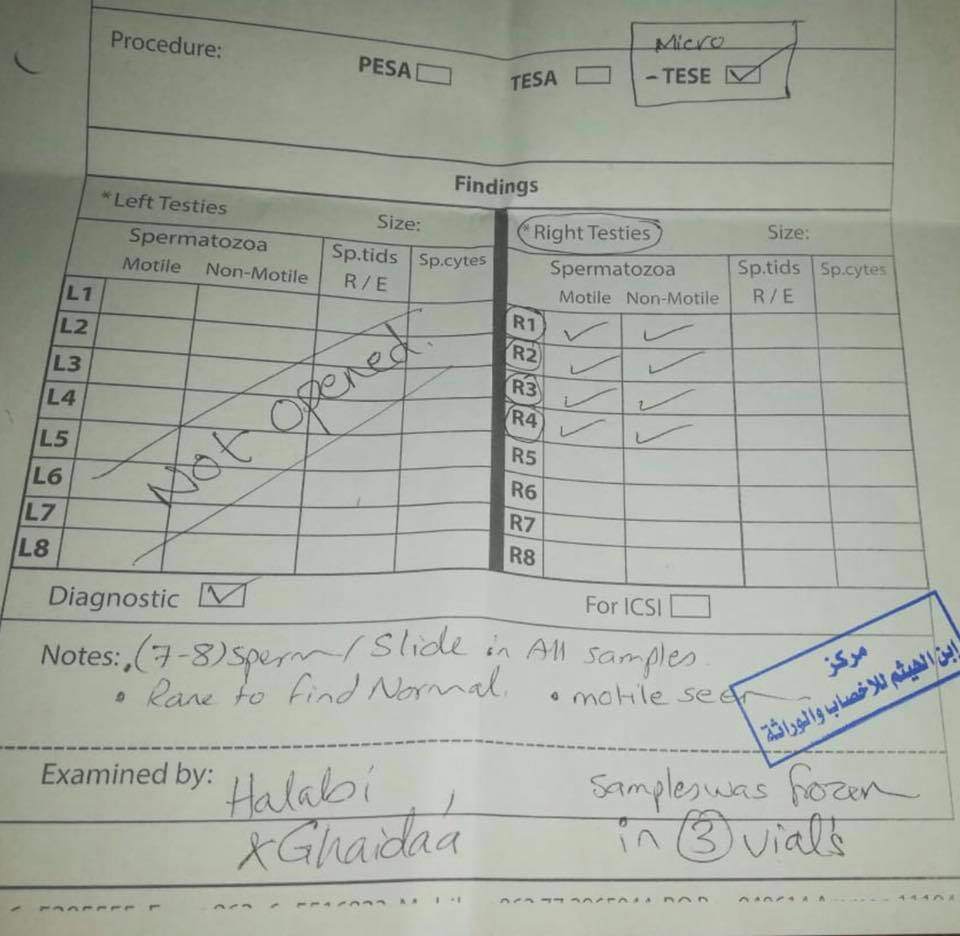 Procedure:
PESA
TESA
Micro
- TESE ✓
Findings
*Left Testies Size:
Spermatozoa Sp.tids Sp.cytes
Motile Non-Motile R / E
L1
L2
L3
L4
L5
L6
L7
L8
Not Opened.
*Right Testies Size:
Spermatozoa Sp.tids Sp.cytes
Motile Non-Motile R / E
R1 ✓ ✓
R2 ✓ ✓
R3 ✓ ✓
R4 ✓ ✓
R5
R6
R7
R8
Diagnostic ✓ For ICSI
Notes: (7-8) sperm / Slide in All samples.
• Rare to find Normal. • motile seen
مركز
ابن الهيثم للاخصاب والوراثة
Examined by: Halabi
& Ghaidaa
samples was frozen
in 3 vial's